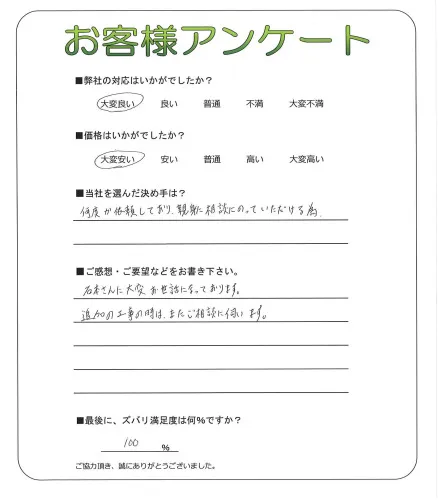 お客様アンケート
■弊社の対応はいかがでしたか?
大変良い 良い 普通 不満 大変不満
■価格はいかがでしたか?
大変安い 安い 普通 高い 大変高い
■当社を選んだ決め手は?
何度か依頼しており、親身に相談にのっていただける為。
■ご感想・ご要望などをお書き下さい。
さんに大変お世話になっております。
追加の工事の時は、またご相談に伺います。
■最後に、ズバリ満足度は何%ですか?
100 %
ご協力頂き、誠にありがとうございました。